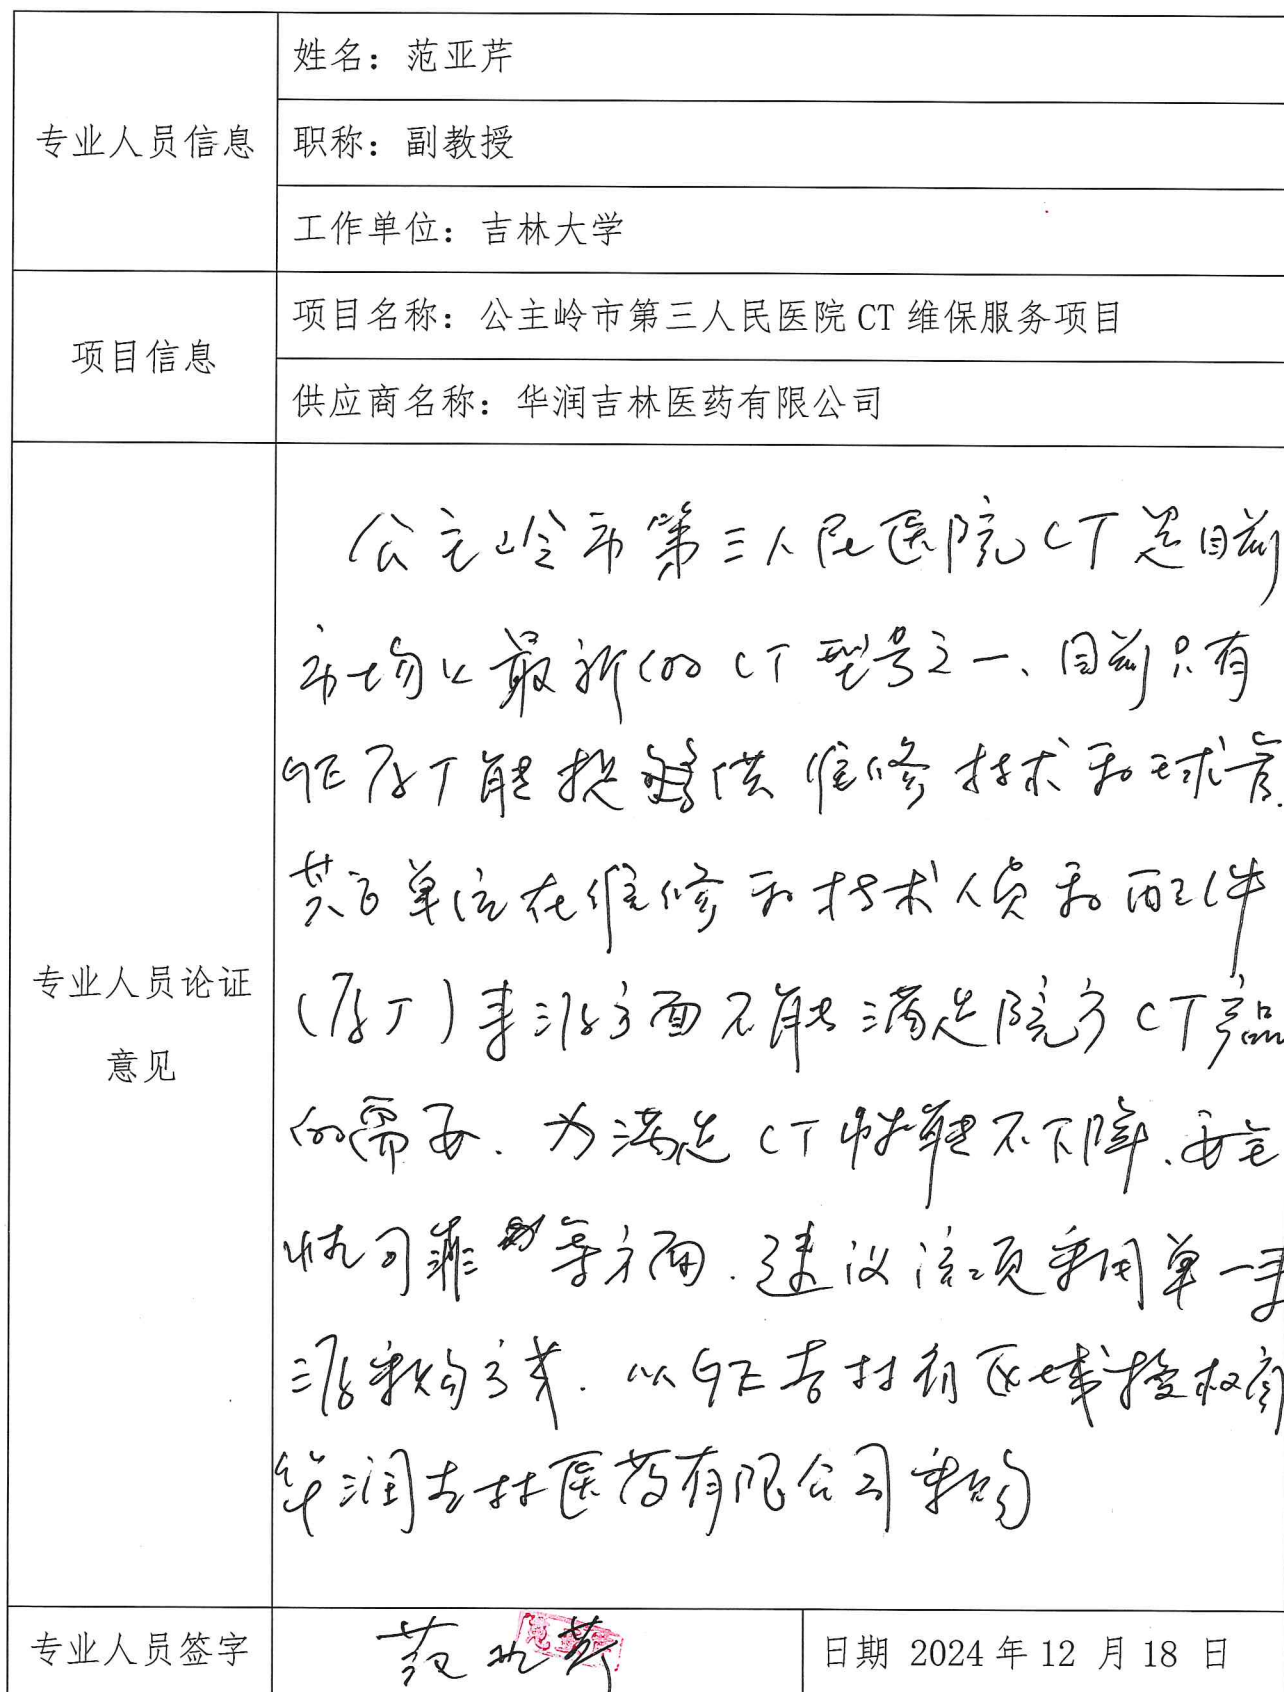 姓名：范亚芹
专业人员信息
职称：副教授
工作单位：吉林大学
项目名称：公主岭市第三人民医院 CT 维保服务项目
项目信息
供应商名称：华润吉林医药有限公司
公主岭市第三人民医院CT是目前
市场上最新的CT型号之一、目前只有
GE原厂能提供维修技术和球管.
其它单位在维修和技术人员和配件
(原厂)来源方面不能满足院方CT产品
的需要. 为满足CT性能不下降、安全
性可靠等方面. 建议该项采用单一来
源采购方式. 从GE吉林省区域授权商
华润吉林医药有限公司采购
专业人员论证
意见
专业人员签字
范亚芹
日期 2024 年 12 月 18 日